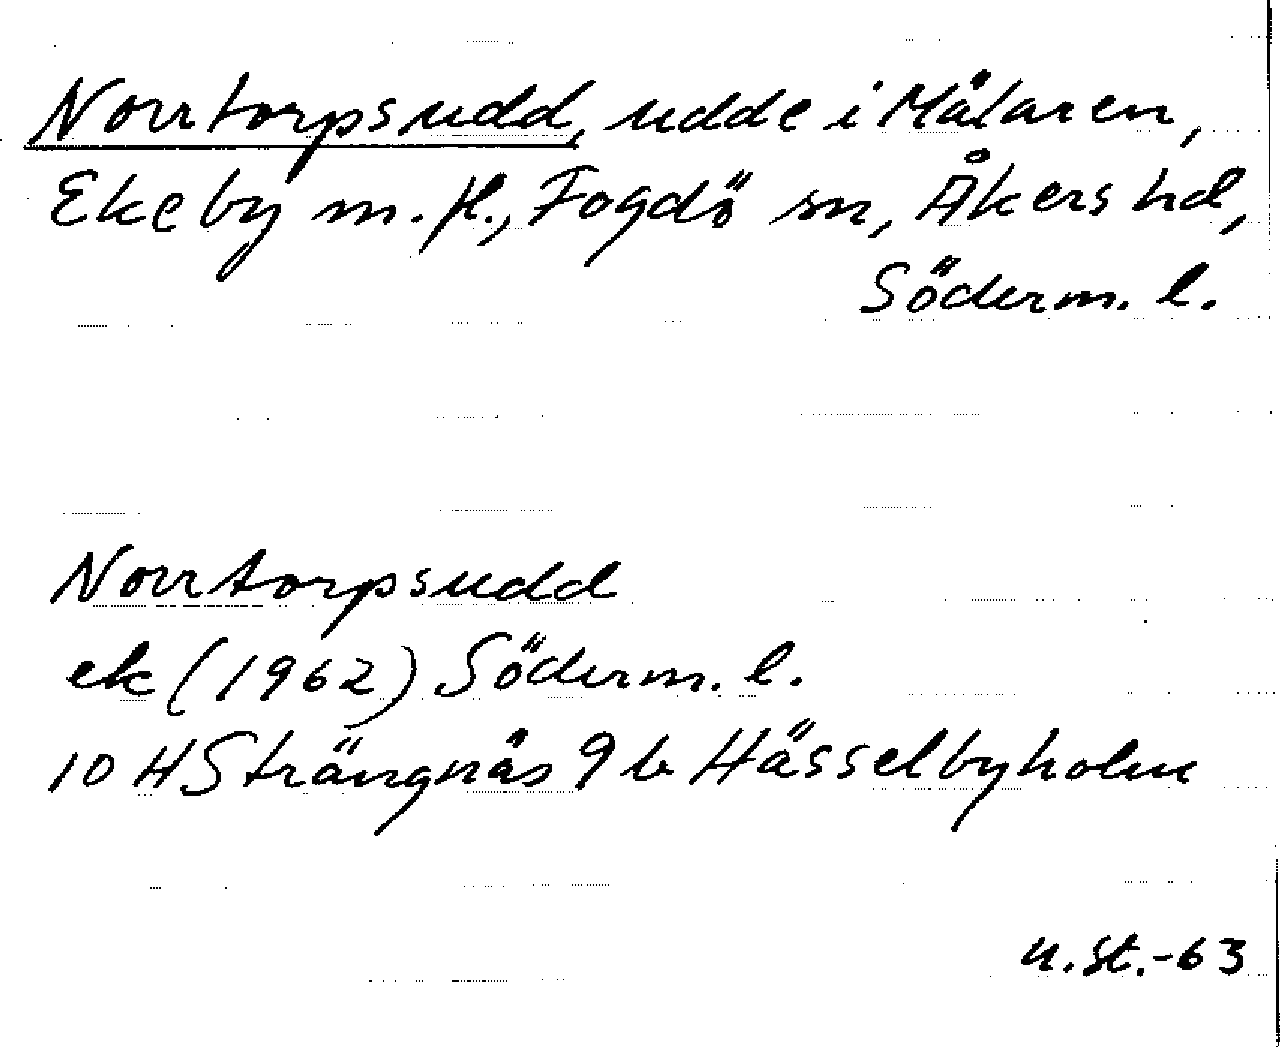 Norrtorpsudd, udde i Mälaren,
Ekeby m. fl., Fogdö sn, Åkers hd,
Söderm. l.
Norrtorpsudd
ek (1962) Söderm. l.
10 H Strängnäs 9 b Hässelbyholm
u. St. -63